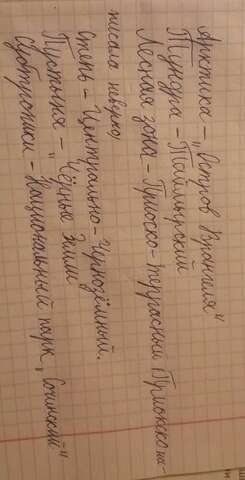 Арктика – „Остров Врангеля"
Тундра – Таймырский
Лесная зона – Приоско-террасный (Приокско на-
писала неверно)
степь – Центрально-Чернозёмный.
Пустыня – „Чёрные земли
Субтропики – Национальный парк „Сочинский"